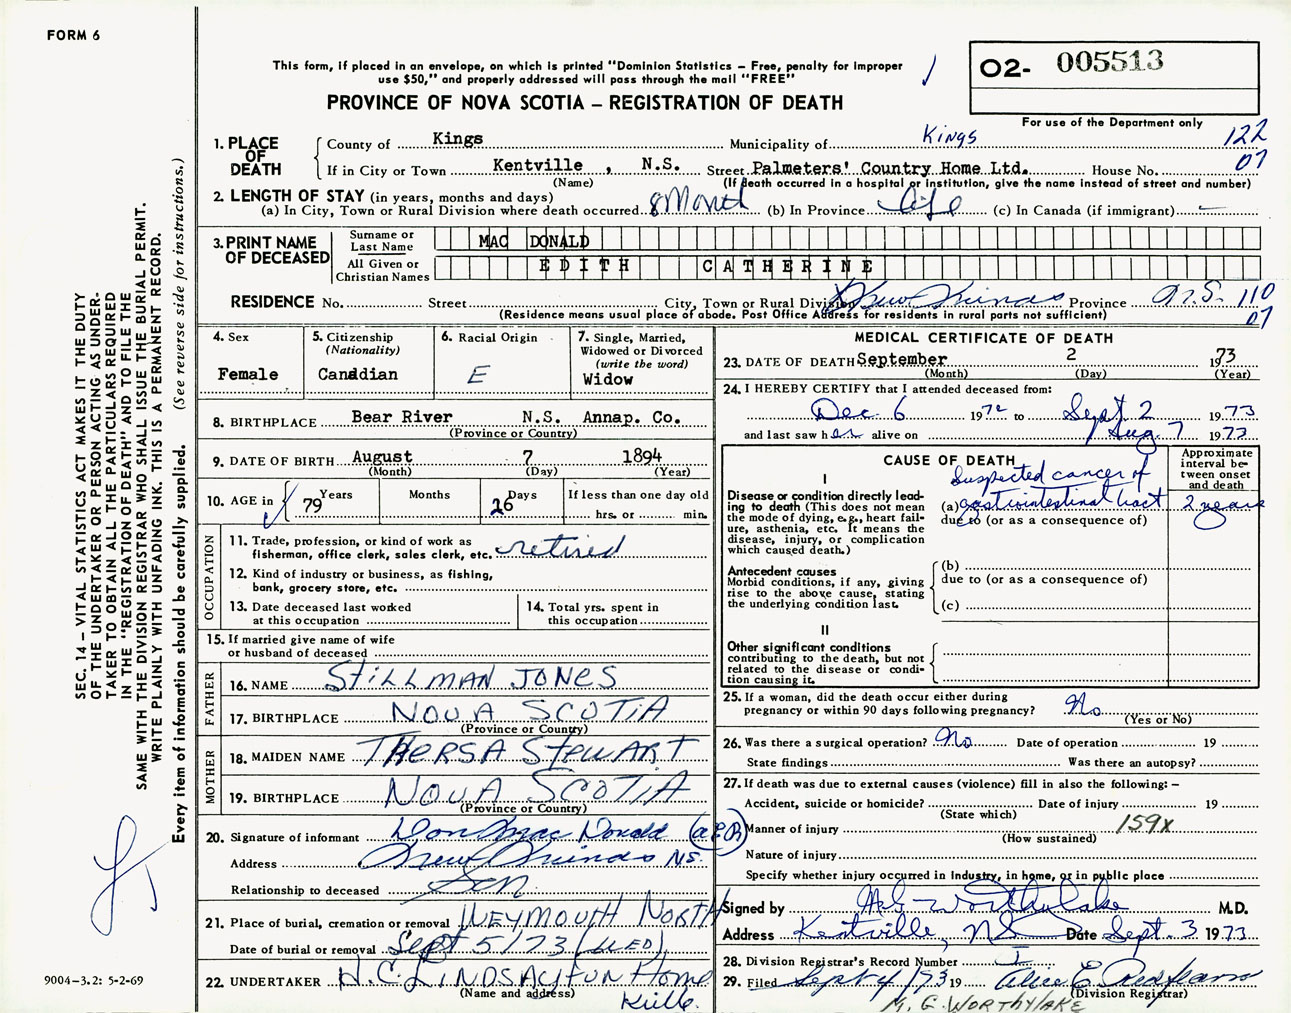 FORM 6
This form, if placed in an envelope, on which is printed "Dominion Statistics – Free, penalty for improper
use $50," and properly addressed will pass through the mail "FREE"
PROVINCE OF NOVA SCOTIA – REGISTRATION OF DEATH
O2- 005513
For use of the Department only
1. PLACE OF DEATH
County of Kings Municipality of Kings 122
07
If in City or Town Kentville , N.S. Street Palmeters' Country Home Ltd. House No.
(Name) (If death occurred in a hospital or institution, give the name instead of street and number)
2. LENGTH OF STAY (in years, months and days)
(a) In City, Town or Rural Division where death occurred 8 Month (b) In Province Life (c) In Canada (if immigrant) –
3. PRINT NAME OF DECEASED
Surname or Last Name MAC DONALD
All Given or Christian Names EDITH CATHERINE
RESIDENCE No. Street City, Town or Rural Division New Minas Province N.S. 110
07
(Residence means usual place of abode. Post Office Address for residents in rural parts not sufficient)
4. Sex
Female
5. Citizenship
(Nationality)
Canadian
6. Racial Origin
E
7. Single, Married,
Widowed or Divorced
(write the word)
Widow
8. BIRTHPLACE Bear River N.S. Annap. Co.
(Province or Country)
9. DATE OF BIRTH August 7 1894
(Month) (Day) (Year)
10. AGE in 79 Years Months 26 Days If less than one day old
hrs. or min.
OCCUPATION
11. Trade, profession, or kind of work as
fisherman, office clerk, sales clerk, etc. retired
12. Kind of industry or business, as fishing,
bank, grocery store, etc.
13. Date deceased last worked
at this occupation
14. Total yrs. spent in
this occupation
15. If married give name of wife
or husband of deceased
FATHER
16. NAME STILLMAN JONES
17. BIRTHPLACE NOVA SCOTIA
(Province or Country)
MOTHER
18. MAIDEN NAME THERSA STEWART
19. BIRTHPLACE NOVA SCOTIA
(Province or Country)
20. Signature of informant Don MacDonald
Address New Minas NS.
Relationship to deceased Son
21. Place of burial, cremation or removal WEYMOUTH NORTH
Date of burial or removal Sept 5/73 (WED)
22. UNDERTAKER H.C. LINDSAY FUN Home
(Name and address)
Kville
MEDICAL CERTIFICATE OF DEATH
23. DATE OF DEATH September 2 1973
(Month) (Day) (Year)
24. I HEREBY CERTIFY that I attended deceased from:
Dec. 6 1972 to Sept 2 1973
and last saw her alive on Aug. 7 1973
CAUSE OF DEATH
Approximate
interval be-
tween onset
and death
I
Disease or condition directly lead-
ing to death (This does not mean
the mode of dying, e.g., heart fail-
ure, asthenia, etc. It means the
disease, injury, or complication
which caused death.)
Suspected cancer of
(a) gastrointestinal tract 2 years
due to (or as a consequence of)
Antecedent causes
Morbid conditions, if any, giving
rise to the above cause, stating
the underlying condition last.
(b)
due to (or as a consequence of)
(c)
II
Other significant conditions
contributing to the death, but not
related to the disease or condi-
tion causing it.
25. If a woman, did the death occur either during
pregnancy or within 90 days following pregnancy? No
(Yes or No)
26. Was there a surgical operation? No Date of operation 19
State findings Was there an autopsy?
27. If death was due to external causes (violence) fill in also the following: –
Accident, suicide or homicide? Date of injury 19
(State which)
Manner of injury 159X
(How sustained)
Nature of injury
Specify whether injury occurred in Industry, in home, or in public place
Signed by M G Worthylake M.D.
Address Kentville, NS Date Sept. 3 1973
28. Division Registrar's Record Number
29. Filed Sept 4/73 19 Alice E.
(Division Registrar)
M. G. WORTHYLAKE
SEC. 14 – VITAL STATISTICS ACT MAKES IT THE DUTY
OF THE UNDERTAKER OR PERSON ACTING AS UNDER-
TAKER TO OBTAIN ALL THE PARTICULARS REQUIRED
IN THE "REGISTRATION OF DEATH" AND TO FILE THE
SAME WITH THE DIVISION REGISTRAR WHO SHALL ISSUE THE BURIAL PERMIT.
WRITE PLAINLY WITH UNFADING INK. THIS IS A PERMANENT RECORD.
Every item of information should be carefully supplied. (See reverse side for instructions.)
9004–3.2: 5-2-69